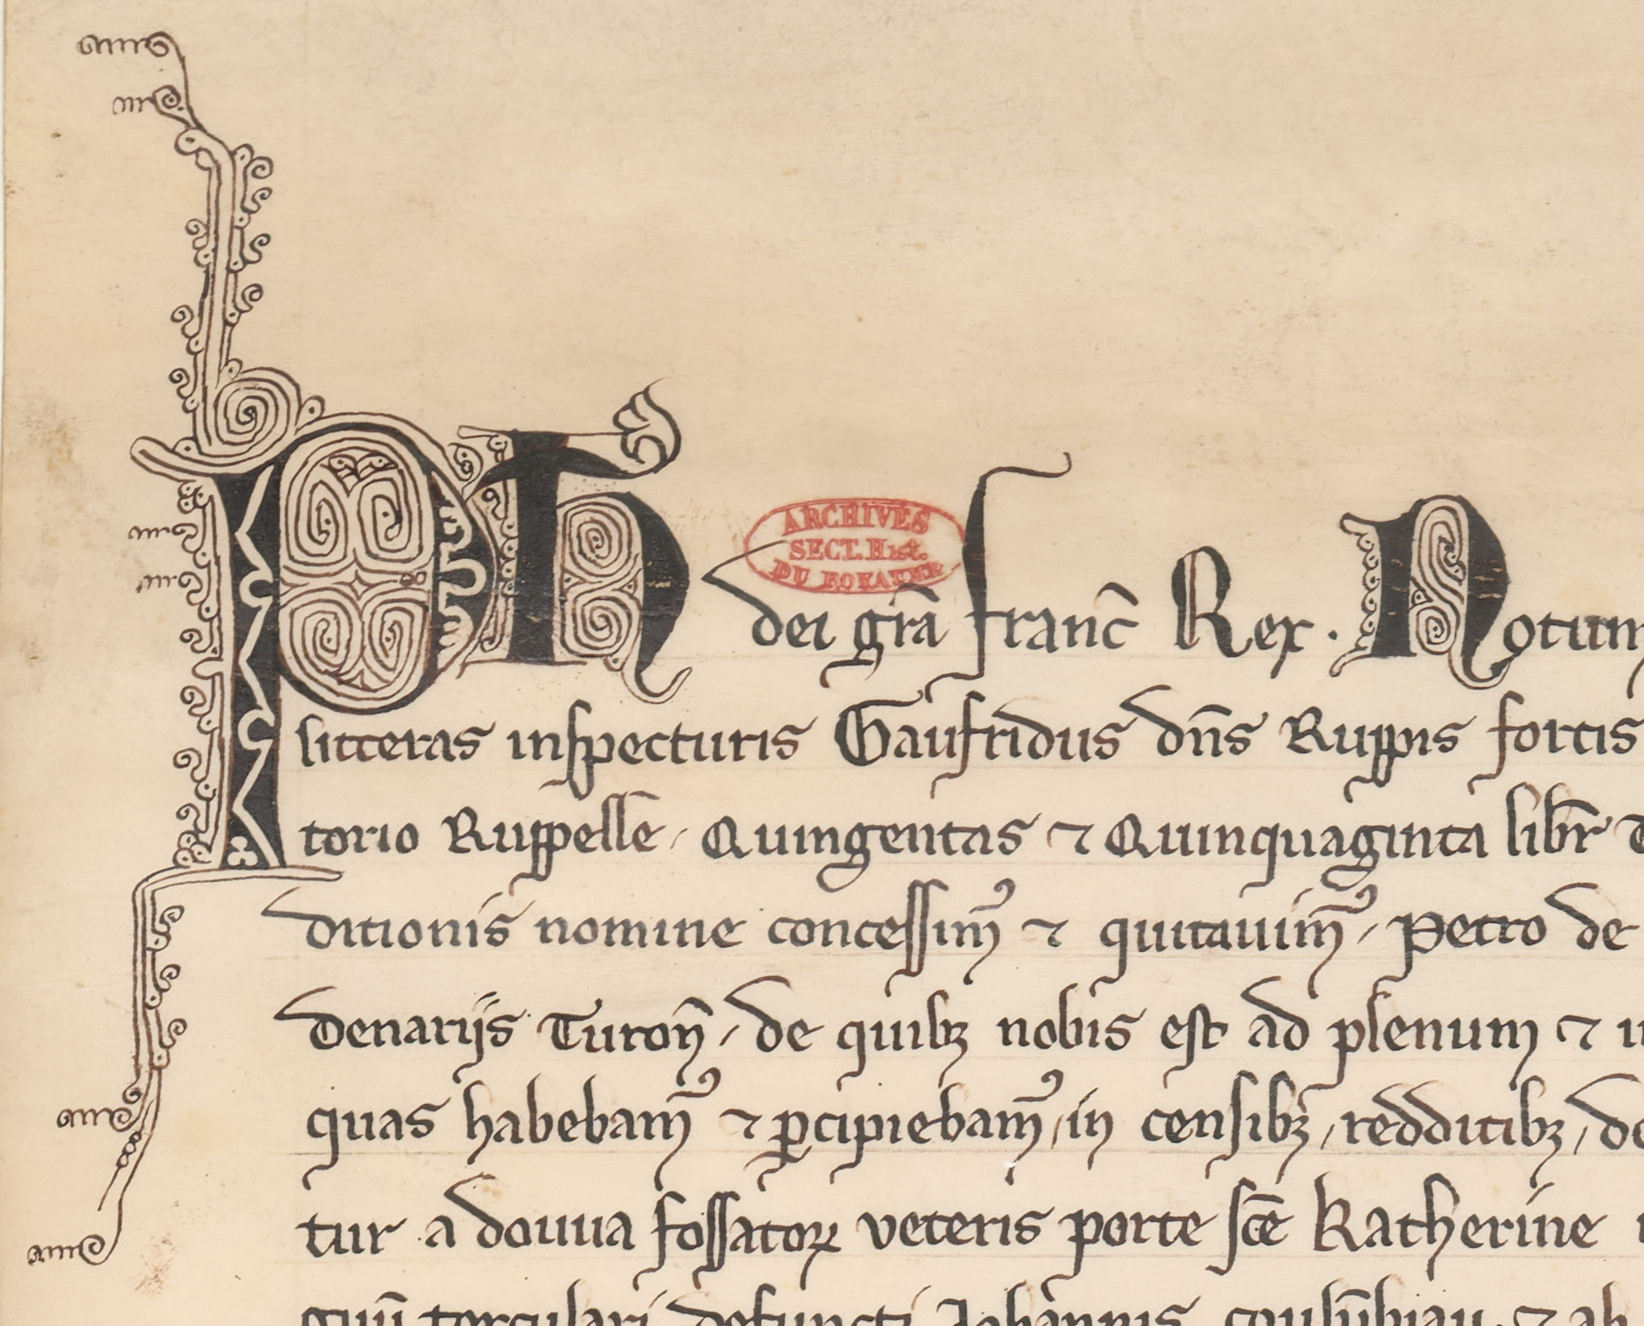 ARCHIVES
SECT. Hist.
DU ROYAUME
Ph dei grā franc̄ Rex. Notum
litteras inspecturis Gaufridus dn̄s Ruppis fortis
torio Ruppelle / Quingentas ⁊ Quinquaginta libr̄
ditionis nomine concessimꝰ ⁊ quitauimꝰ / Petro de
denarijs Turon̄ / de quibꝫ nobis est ad plenum ⁊
quas habebamꝰ ⁊ ꝑcipiebamꝰ / in censibꝫ / redditibꝫ /
tur a douua fossatoꝝ veteris porte sc̄e Katherine
torculari defuncti Iohannis ⁊ ab